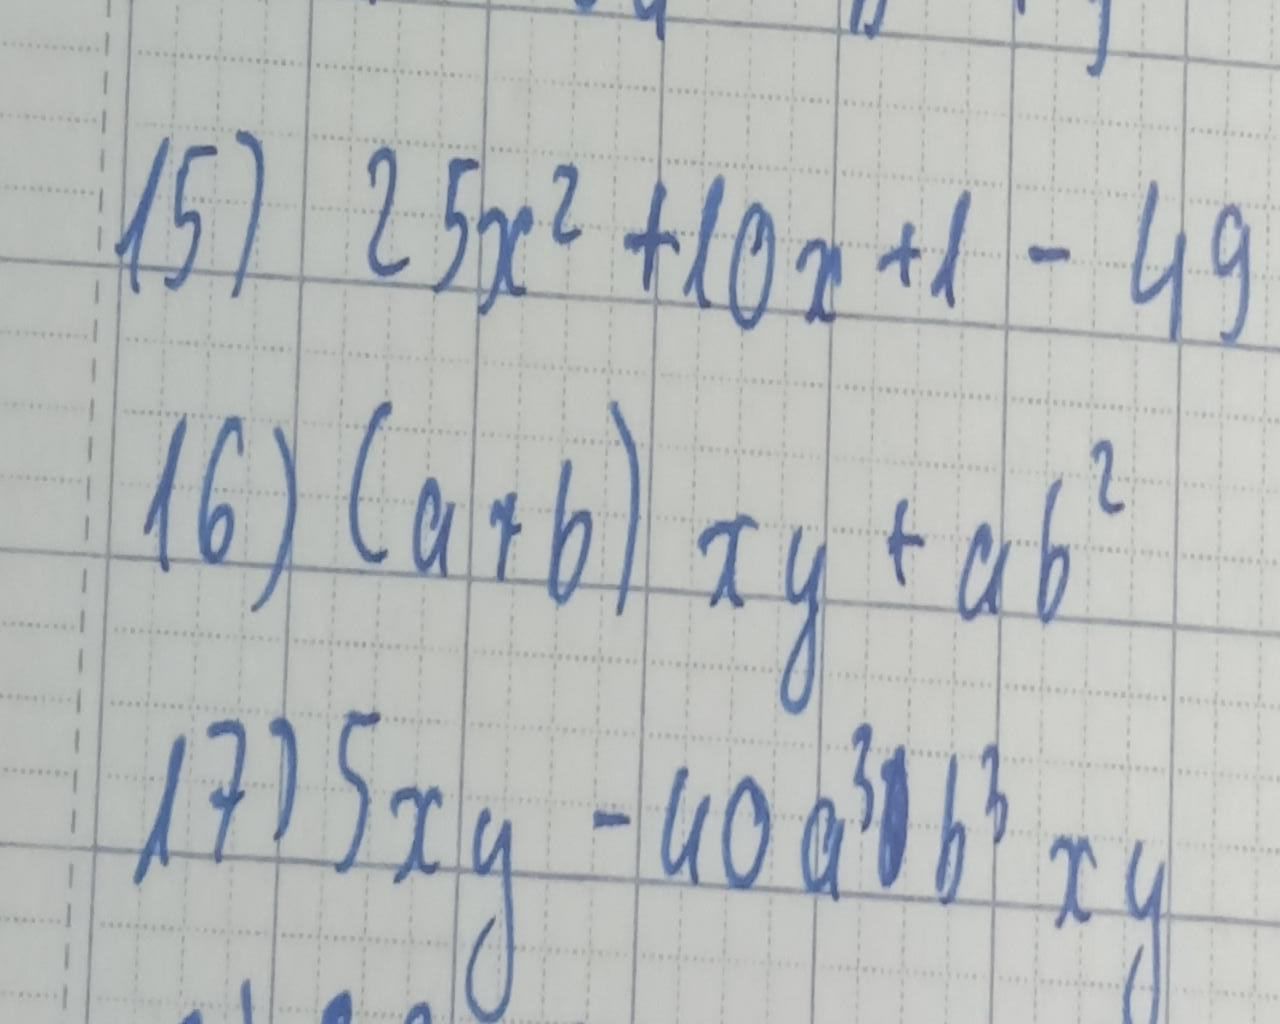 15) 25x² + 10x + 1 - 49
16) (a + b) xy + ab²
17) 5xy - 40a³b³xy